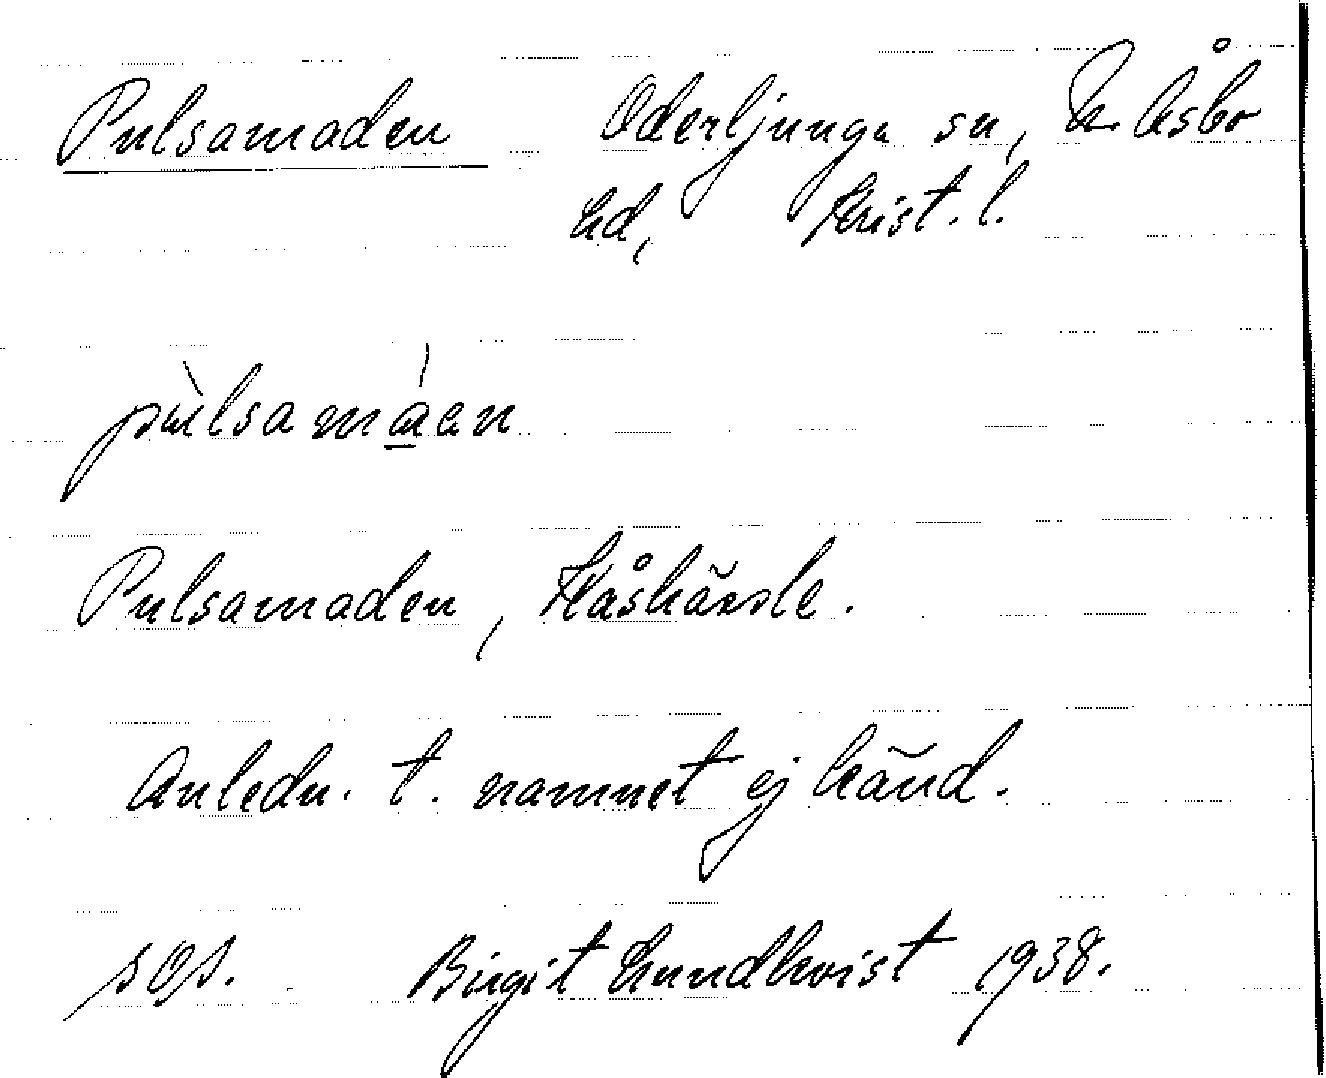 Pulsamaden Oderljunga sn, N. Åsbo
hd, Krist. l.
pùlsamáen
Pulsamaden, Flåshärsle.
Anledn. t. namnet ej känd.
sgs. Birgit Lundkvist 1938.